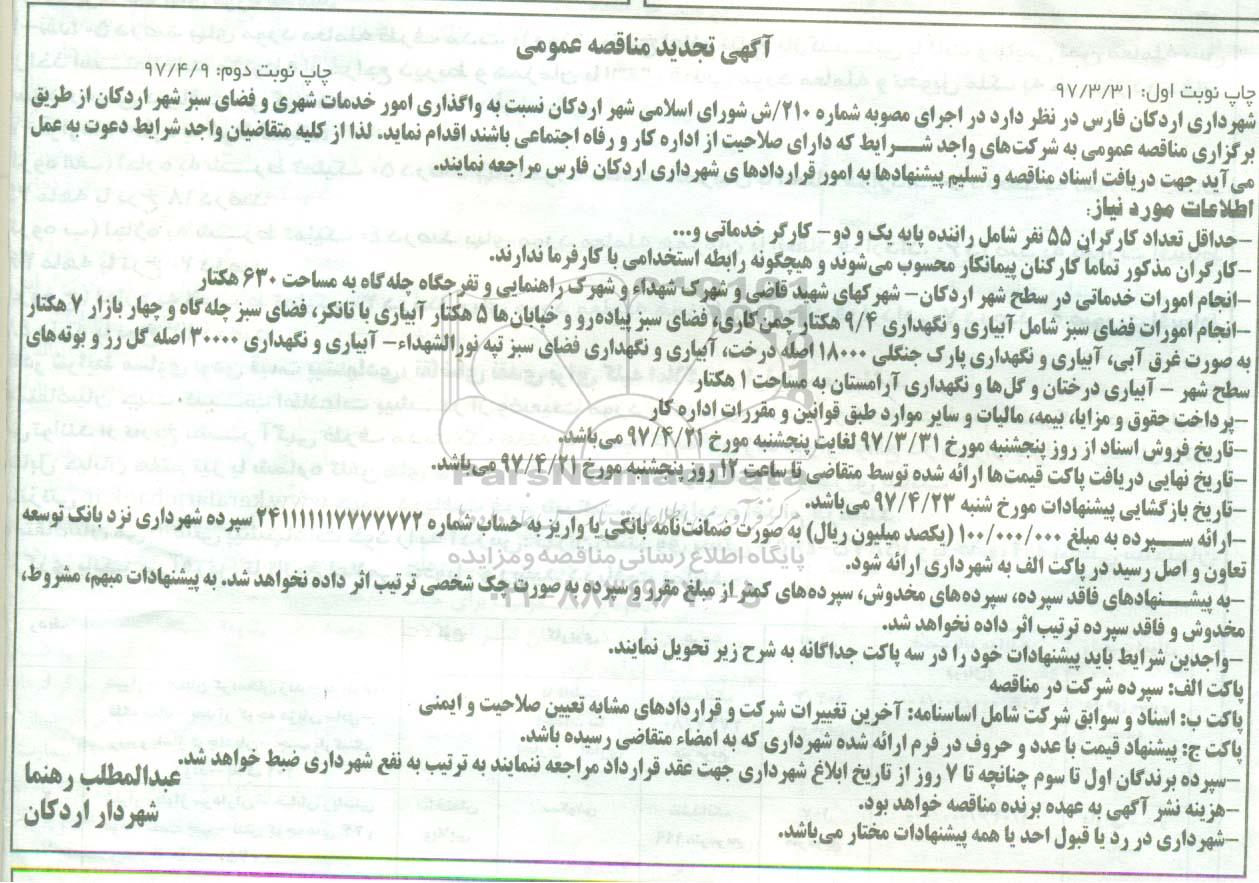 آگهی تجدید مناقصه عمومی
چاپ نوبت اول: ۹۷/۳/۳۱
چاپ نوبت دوم: ۹۷/۴/۹
شهرداری اردکان فارس در نظر دارد در اجرای مصوبه شماره ۲۱۰/ش شورای اسلامی شهر اردکان نسبت به واگذاری امور خدمات شهری و فضای سبز شهر اردکان از طریق
برگزاری مناقصه عمومی به شرکت‌های واجد شرایط که دارای صلاحیت از اداره کار و رفاه اجتماعی باشند اقدام نماید. لذا از کلیه متقاضیان واجد شرایط دعوت به عمل
می‌آید جهت دریافت اسناد مناقصه و تسلیم پیشنهادها به امور قراردادهای شهرداری اردکان فارس مراجعه نمایند.
اطلاعات مورد نیاز:
-حداقل تعداد کارگران ۵۵ نفر شامل راننده پایه یک و دو- کارگر خدماتی و...
-کارگران مذکور تماما کارکنان پیمانکار محسوب می‌شوند و هیچگونه رابطه استخدامی با کارفرما ندارند.
-انجام امورات خدماتی در سطح شهر اردکان- شهرکهای شهید قاضی و شهرک شهداء و شهرک راهنمایی و تفرجگاه چله‌گاه به مساحت ۶۳۰ هکتار
-انجام امورات فضای سبز شامل آبیاری و نگهداری ۹/۴ هکتار چمن‌کاری، فضای سبز پیاده‌رو و خیابان‌ها ۵ هکتار آبیاری با تانکر، فضای سبز چله‌گاه و چهار بازار ۷ هکتار
به صورت غرق آبی، آبیاری و نگهداری پارک جنگلی ۱۸۰۰۰ اصله درخت، آبیاری و نگهداری فضای سبز تپه نورالشهداء- آبیاری و نگهداری ۳۰۰۰۰ اصله گل رز و بوته‌های
سطح شهر - آبیاری درختان و گل‌ها و نگهداری آرامستان به مساحت ۱ هکتار
-پرداخت حقوق و مزایا، بیمه، مالیات و سایر موارد طبق قوانین و مقررات اداره کار
-تاریخ فروش اسناد از روز پنجشنبه مورخ ۹۷/۳/۳۱ لغایت پنجشنبه مورخ ۹۷/۴/۲۱ می‌باشد.
-تاریخ نهایی دریافت پاکت قیمت‌ها ارائه شده توسط متقاضی تا ساعت ۱۲ روز پنجشنبه مورخ ۹۷/۴/۲۱ می‌باشد.
-تاریخ بازگشایی پیشنهادات مورخ شنبه ۹۷/۴/۲۳ می‌باشد.
-ارائه سپرده به مبلغ ۱۰۰/۰۰۰/۰۰۰ (یکصد میلیون ریال) به صورت ضمانت‌نامه بانکی یا واریز به حساب شماره سپرده شهرداری نزد بانک توسعه
تعاون و اصل رسید در پاکت الف به شهرداری ارائه شود.
-به پیشنهادهای فاقد سپرده، سپرده‌های مخدوش، سپرده‌های کمتر از مبلغ مقرر و سپرده به صورت چک شخصی ترتیب اثر داده نخواهد شد. به پیشنهادات مبهم، مشروط،
مخدوش و فاقد سپرده ترتیب اثر داده نخواهد شد.
-واجدین شرایط باید پیشنهادات خود را در سه پاکت جداگانه به شرح زیر تحویل نمایند.
پاکت الف: سپرده شرکت در مناقصه
پاکت ب: اسناد و سوابق شرکت شامل اساسنامه: آخرین تغییرات شرکت و قراردادهای مشابه تعیین صلاحیت و ایمنی
پاکت ج: پیشنهاد قیمت با عدد و حروف در فرم ارائه شده شهرداری که به امضاء متقاضی رسیده باشد.
-سپرده برندگان اول تا سوم چنانچه تا ۷ روز از تاریخ ابلاغ شهرداری جهت عقد قرارداد مراجعه ننمایند به ترتیب به نفع شهرداری ضبط خواهد شد.
-هزینه نشر آگهی به عهده برنده مناقصه خواهد بود.
-شهرداری در رد یا قبول احد یا همه پیشنهادات مختار می‌باشد.
عبدالمطلب رهنما
شهردار اردکان
ParsNamadData
پایگاه اطلاع رسانی مناقصه و مزایده